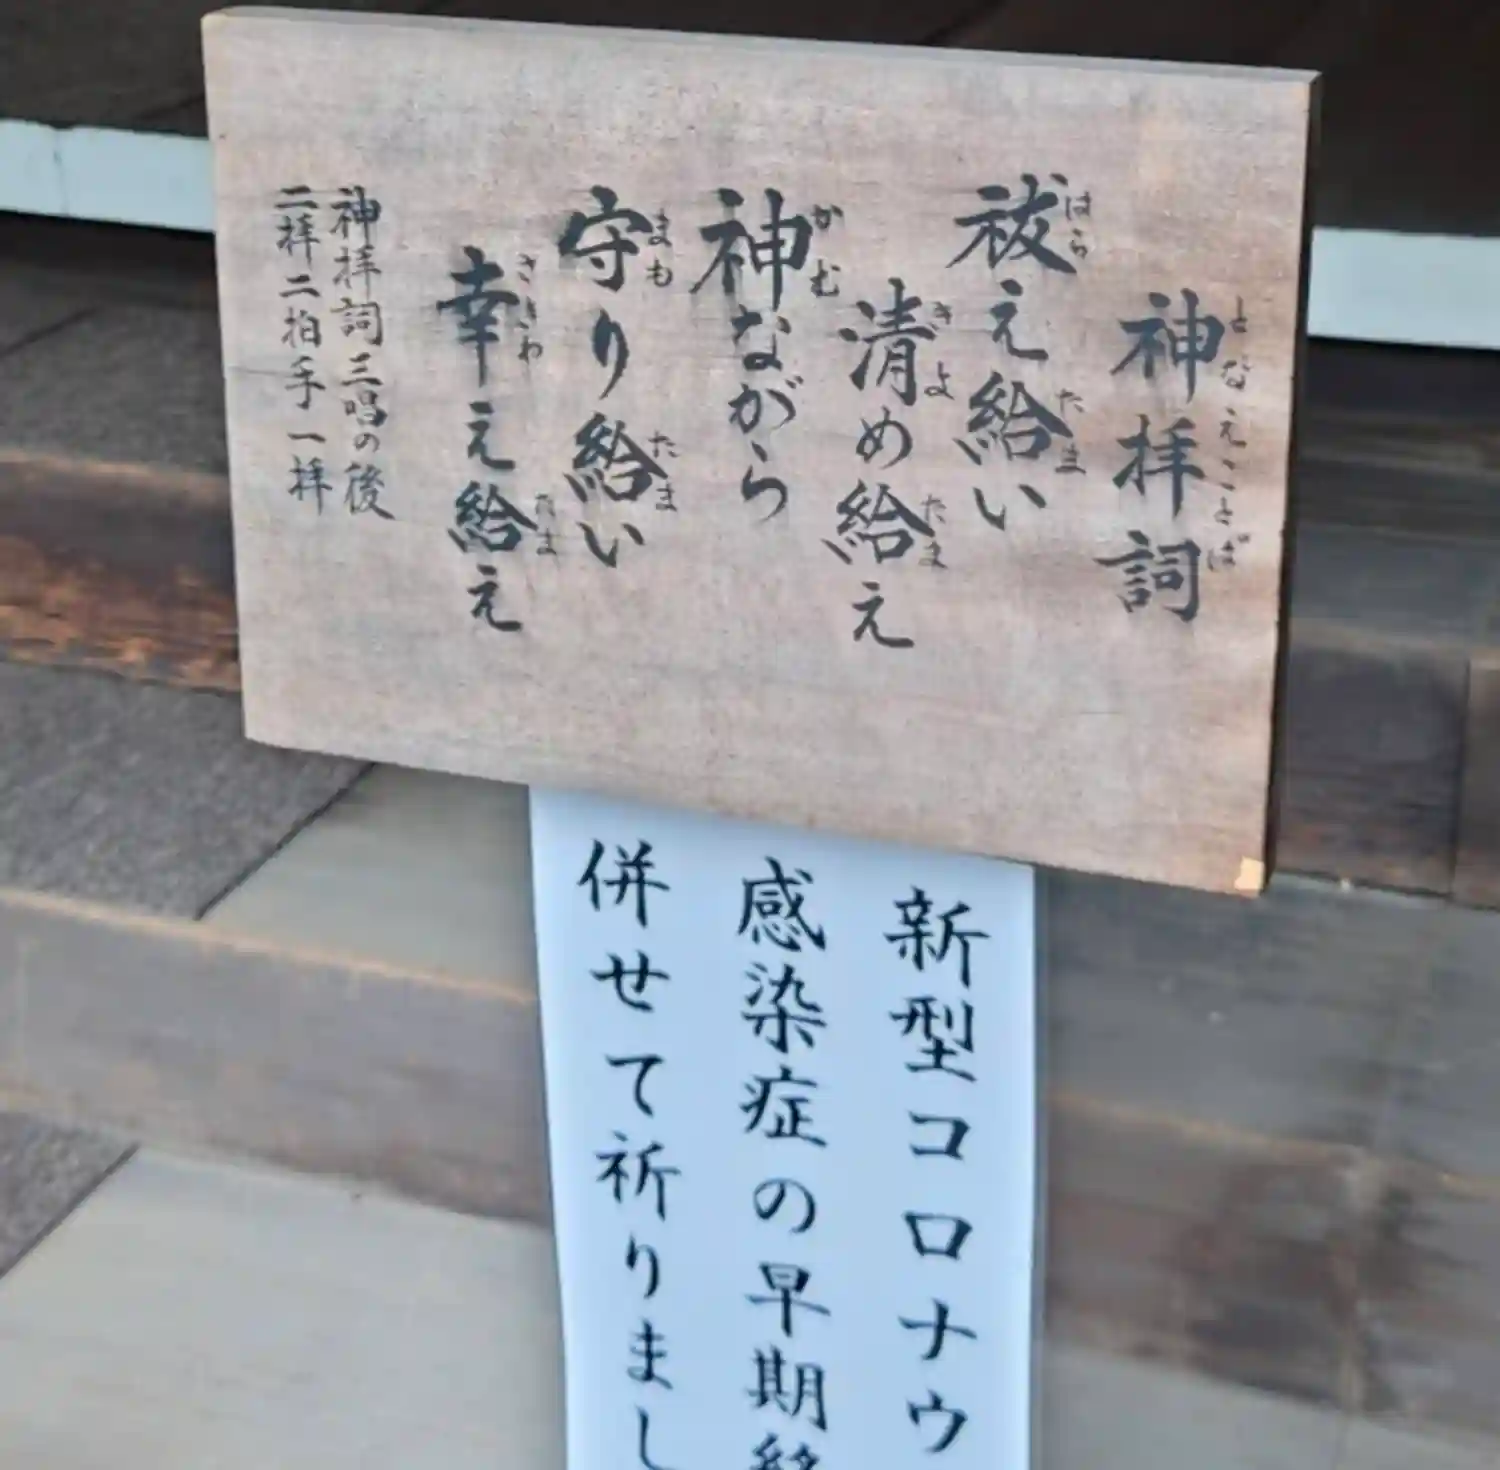 神拝詞
となえことば
祓え給い
はら
たま
清め給え
きよ
たま
神ながら
かむ
守り給い
まも
たま
幸え給え
さきわ
たま
神拝詞三唱の後
二拝二拍手一拝
新型コロナウ
感染症の早期終
併せて祈りまし